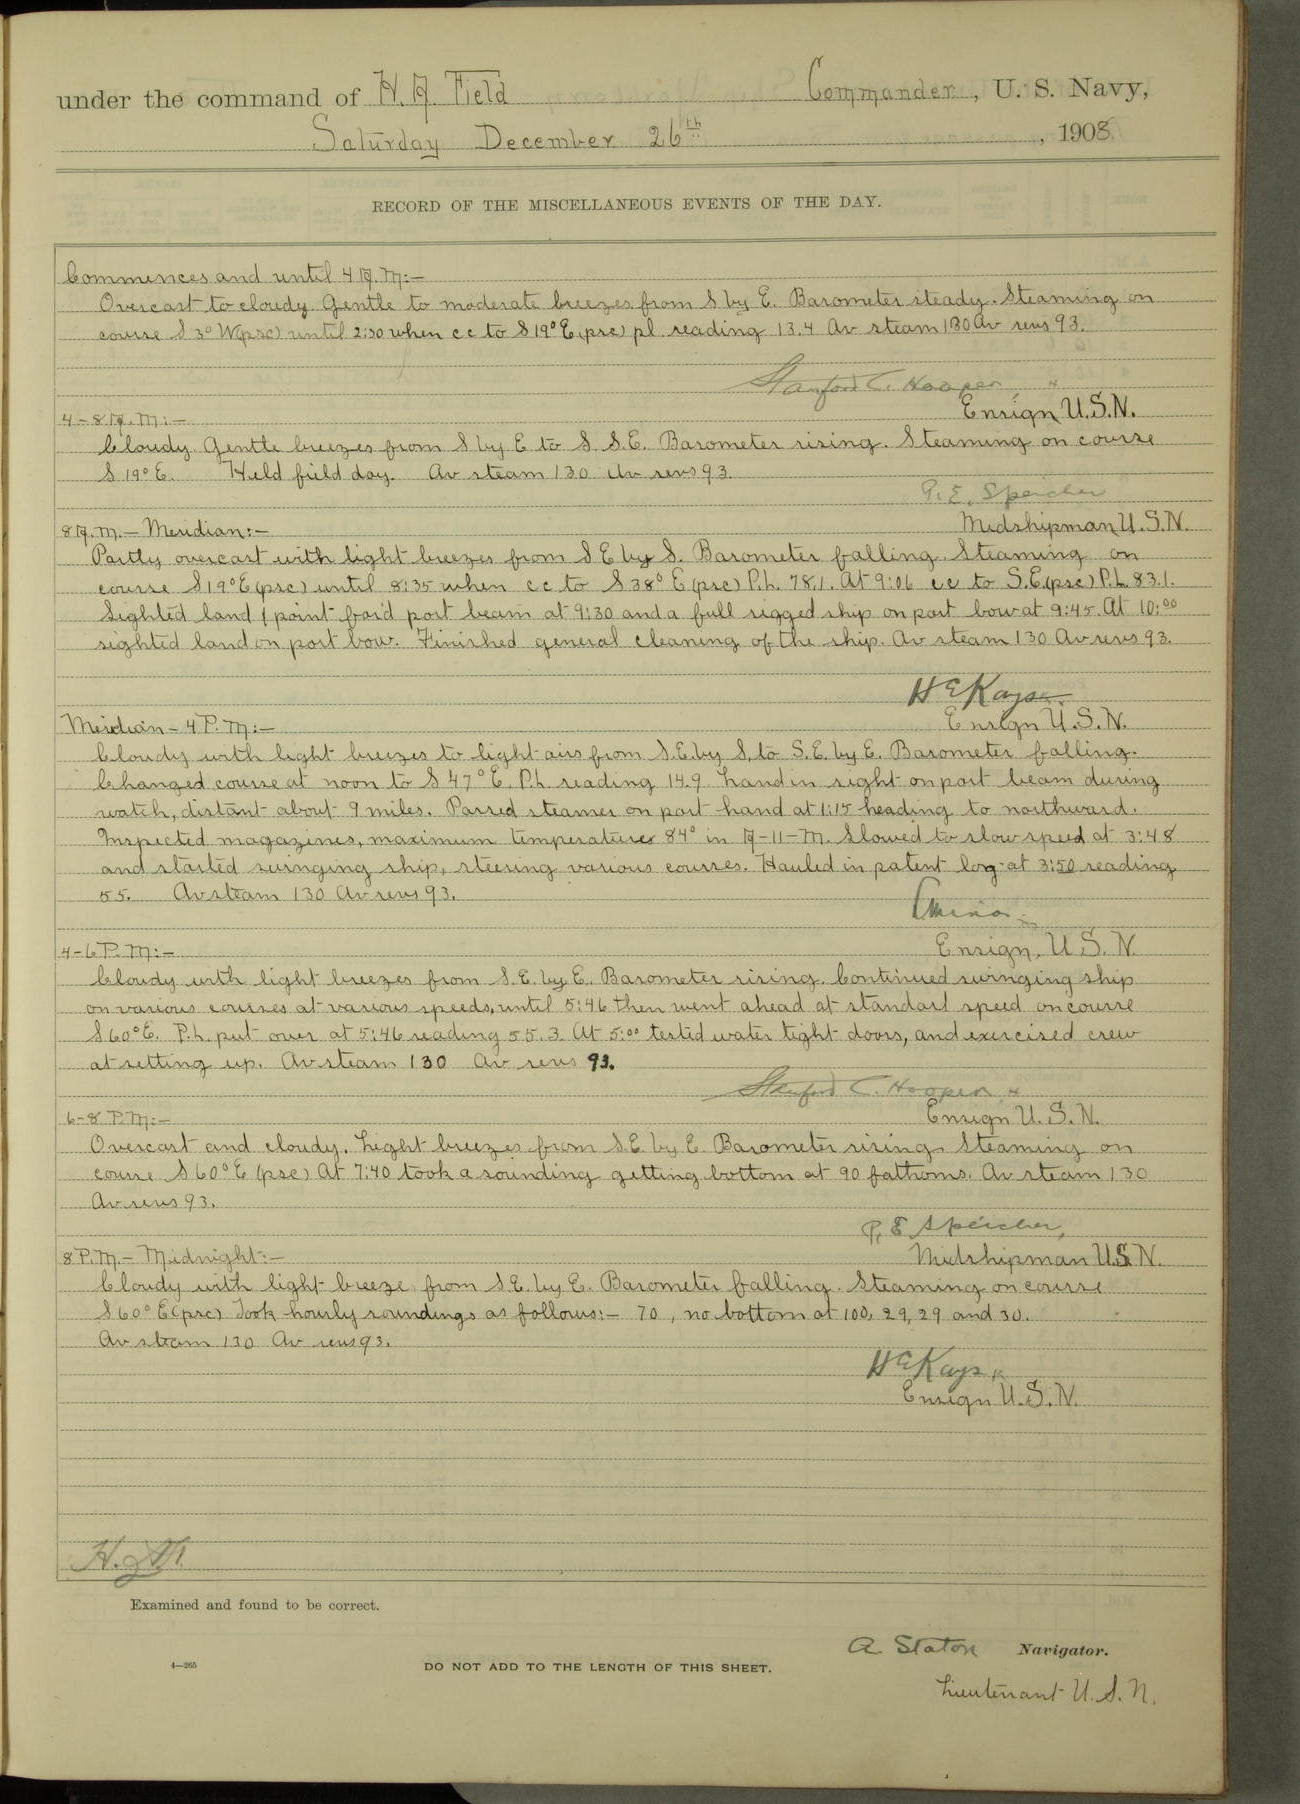 under the command of H. A. Field Commander, U. S. Navy,
Saturday December 26th, 1908
RECORD OF THE MISCELLANEOUS EVENTS OF THE DAY.
Commences and until 4 A.M:—
Overcast to cloudy. Gentle to moderate breezes from S by E. Barometer steady. Steaming on
course S 3° W(psc) until 2:30 when cc to S 19° E (psc) pl reading 13.4 Av steam 130 Av revs 93.
Stanford C. Hooper
Ensign U.S.N.
4-8 A.M:—
Cloudy. Gentle breezes from S by E to S S.E. Barometer rising. Steaming on course
S 19° E. Held field day. Av steam 130 Av revs 93.
P. E. Speicher
Midshipman U.S.N.
8 A.M.— Meridian:—
Partly overcast with light breezes from S E by S. Barometer falling. Steaming on
course S 19° E (psc) until 8:35 when cc to S 38° E (psc) P.L. 78.1. At 9:06 cc to S.E.(psc) P.L. 83.1.
Sighted land 1 point for'd port beam at 9:30 and a full rigged ship on port bow at 9:45. At 10:00
sighted land on port bow. Finished general cleaning of the ship. Av steam 130 Av revs 93.
H E Kays
Ensign U.S.N.
Meridian - 4 P.M:—
Cloudy with light breezes to light airs from S.E. by S. to S.E. by E. Barometer falling.
Changed course at noon to S 47° E. P.L. reading 14.9 Land in sight on port beam during
watch, distant about 9 miles. Passed steamer on port hand at 1:15 heading to northward.
Inspected magazines, maximum temperature 84° in A-11-M. Slowed to slow speed at 3:48
and started swinging ship, steering various courses. Hauled in patent log at 3:50 reading
55. Av steam 130 Av revs 93.
Ensign, U.S.N.
4-6 P.M:—
Cloudy with light breezes from S.E. by E. Barometer rising. Continued swinging ship
on various courses at various speeds, until 5:46 then went ahead at standard speed on course
S 60° E. P.L. put over at 5:46 reading 55.3. At 5:00 tested water tight doors, and exercised crew
at setting up. Av steam 130 Av revs 93.
Stanford C. Hooper
Ensign U.S.N.
6-8 P.M:—
Overcast and cloudy. Light breezes from S.E. by E. Barometer rising. Steaming on
course S 60° E (psc) At 7:40 took a sounding getting bottom at 90 fathoms. Av steam 130
Av revs 93.
P. E Speicher,
Midshipman U.S.N.
8 P.M.— Midnight:—
Cloudy with light breeze from S.E. by E. Barometer falling. Steaming on course
S 60° E (psc) Took hourly soundings as follows:— 70, no bottom at 100, 29, 29 and 30.
Av steam 130 Av revs 93.
H E Kays
Ensign U.S.N.
Examined and found to be correct.
A. Staton Navigator.
4—265 DO NOT ADD TO THE LENGTH OF THIS SHEET.
Lieutenant U.S.N.